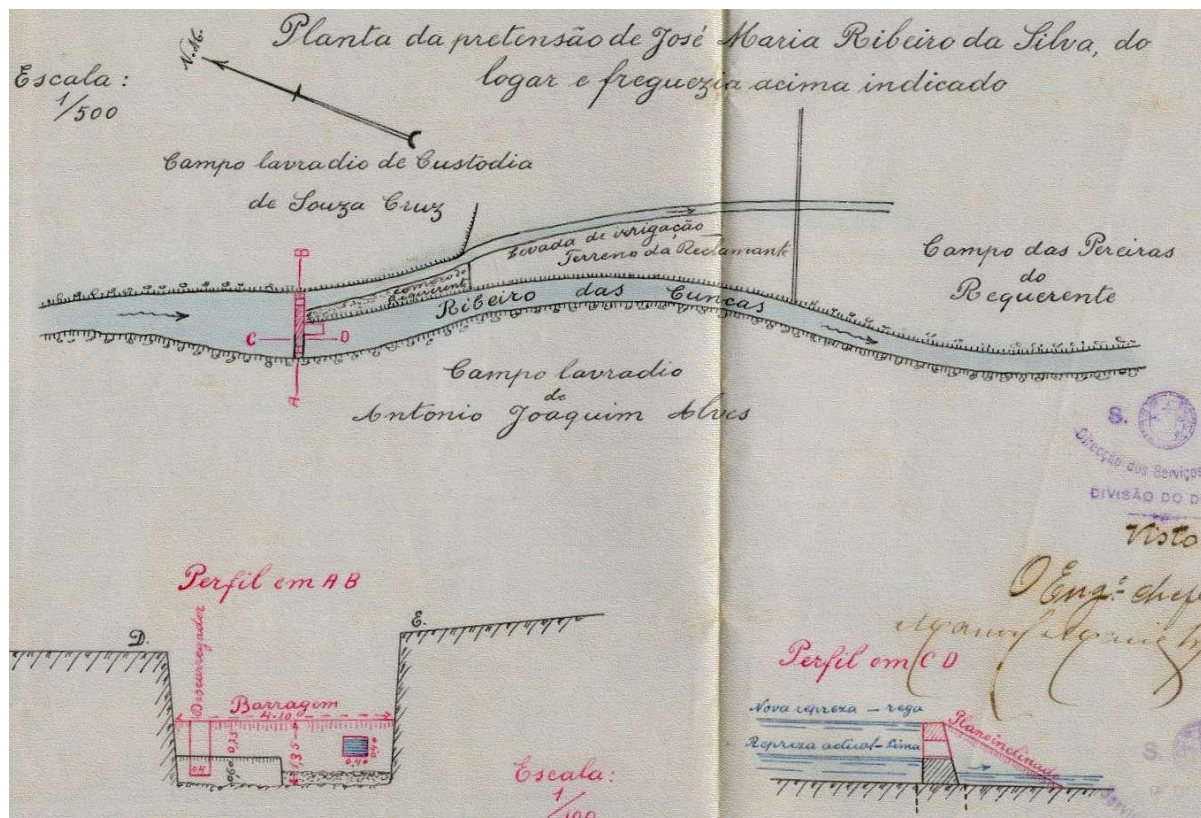 Planta da pretensão de José Maria Ribeiro da Silva, do
logar e freguezia acima indicado
Escala:
1/500
N.M.
Campo lavradio de Custodia
de Souza Cruz
B
Levada de irrigação
Terreno da Reclamante
comoro do
Requerente
Campo das Pereiras
do
Requerente
Ribeiro das Cuncas
C D
A
Campo lavradio
de
Antonio Joaquim Alves
S.
Direcção dos Serviços
DIVISÃO DO D
Visto
O Eng.º chefe
Perfil em A B
D.
E.
Discarregador
Barragem
4,10
0,75
1,35
0,60
0,4
0,40
0,40
Escala:
1/100
Perfil em C D
Nova repreza – rega
Repreza actual – lima
Plano inclinado
S